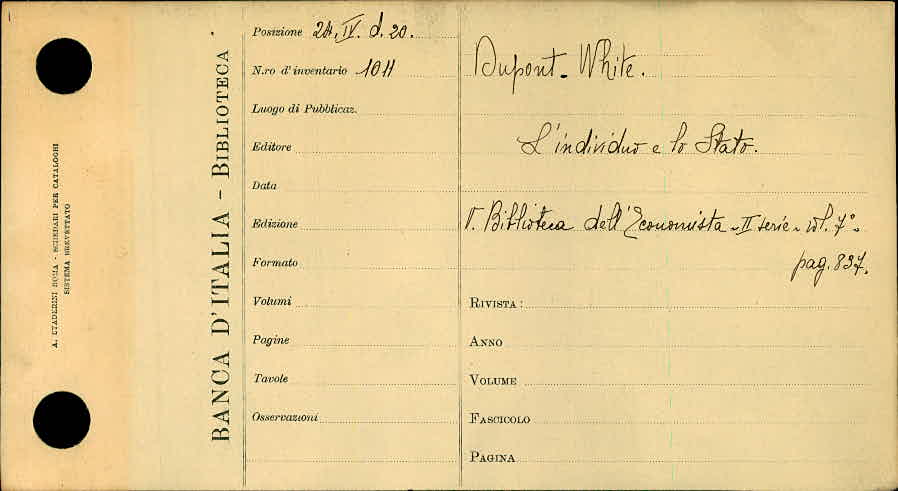 A. STADERINI ROMA - SCHEDARI PER CATALOGHI
SISTEMA BREVETTATO
BANCA D'ITALIA - BIBLIOTECA
Posizione 24. IV. d. 20.
N.ro d'inventario 1011
Luogo di Pubblicaz.
Editore
Data
Edizione
Formato
Volumi
Pagine
Tavole
Osservazioni
Dupont-White.
L'individuo e lo Stato.
V. Biblioteca dell'Economista - II serie - vol. 7° -
pag. 837.
RIVISTA:
ANNO
VOLUME
FASCICOLO
PAGINA